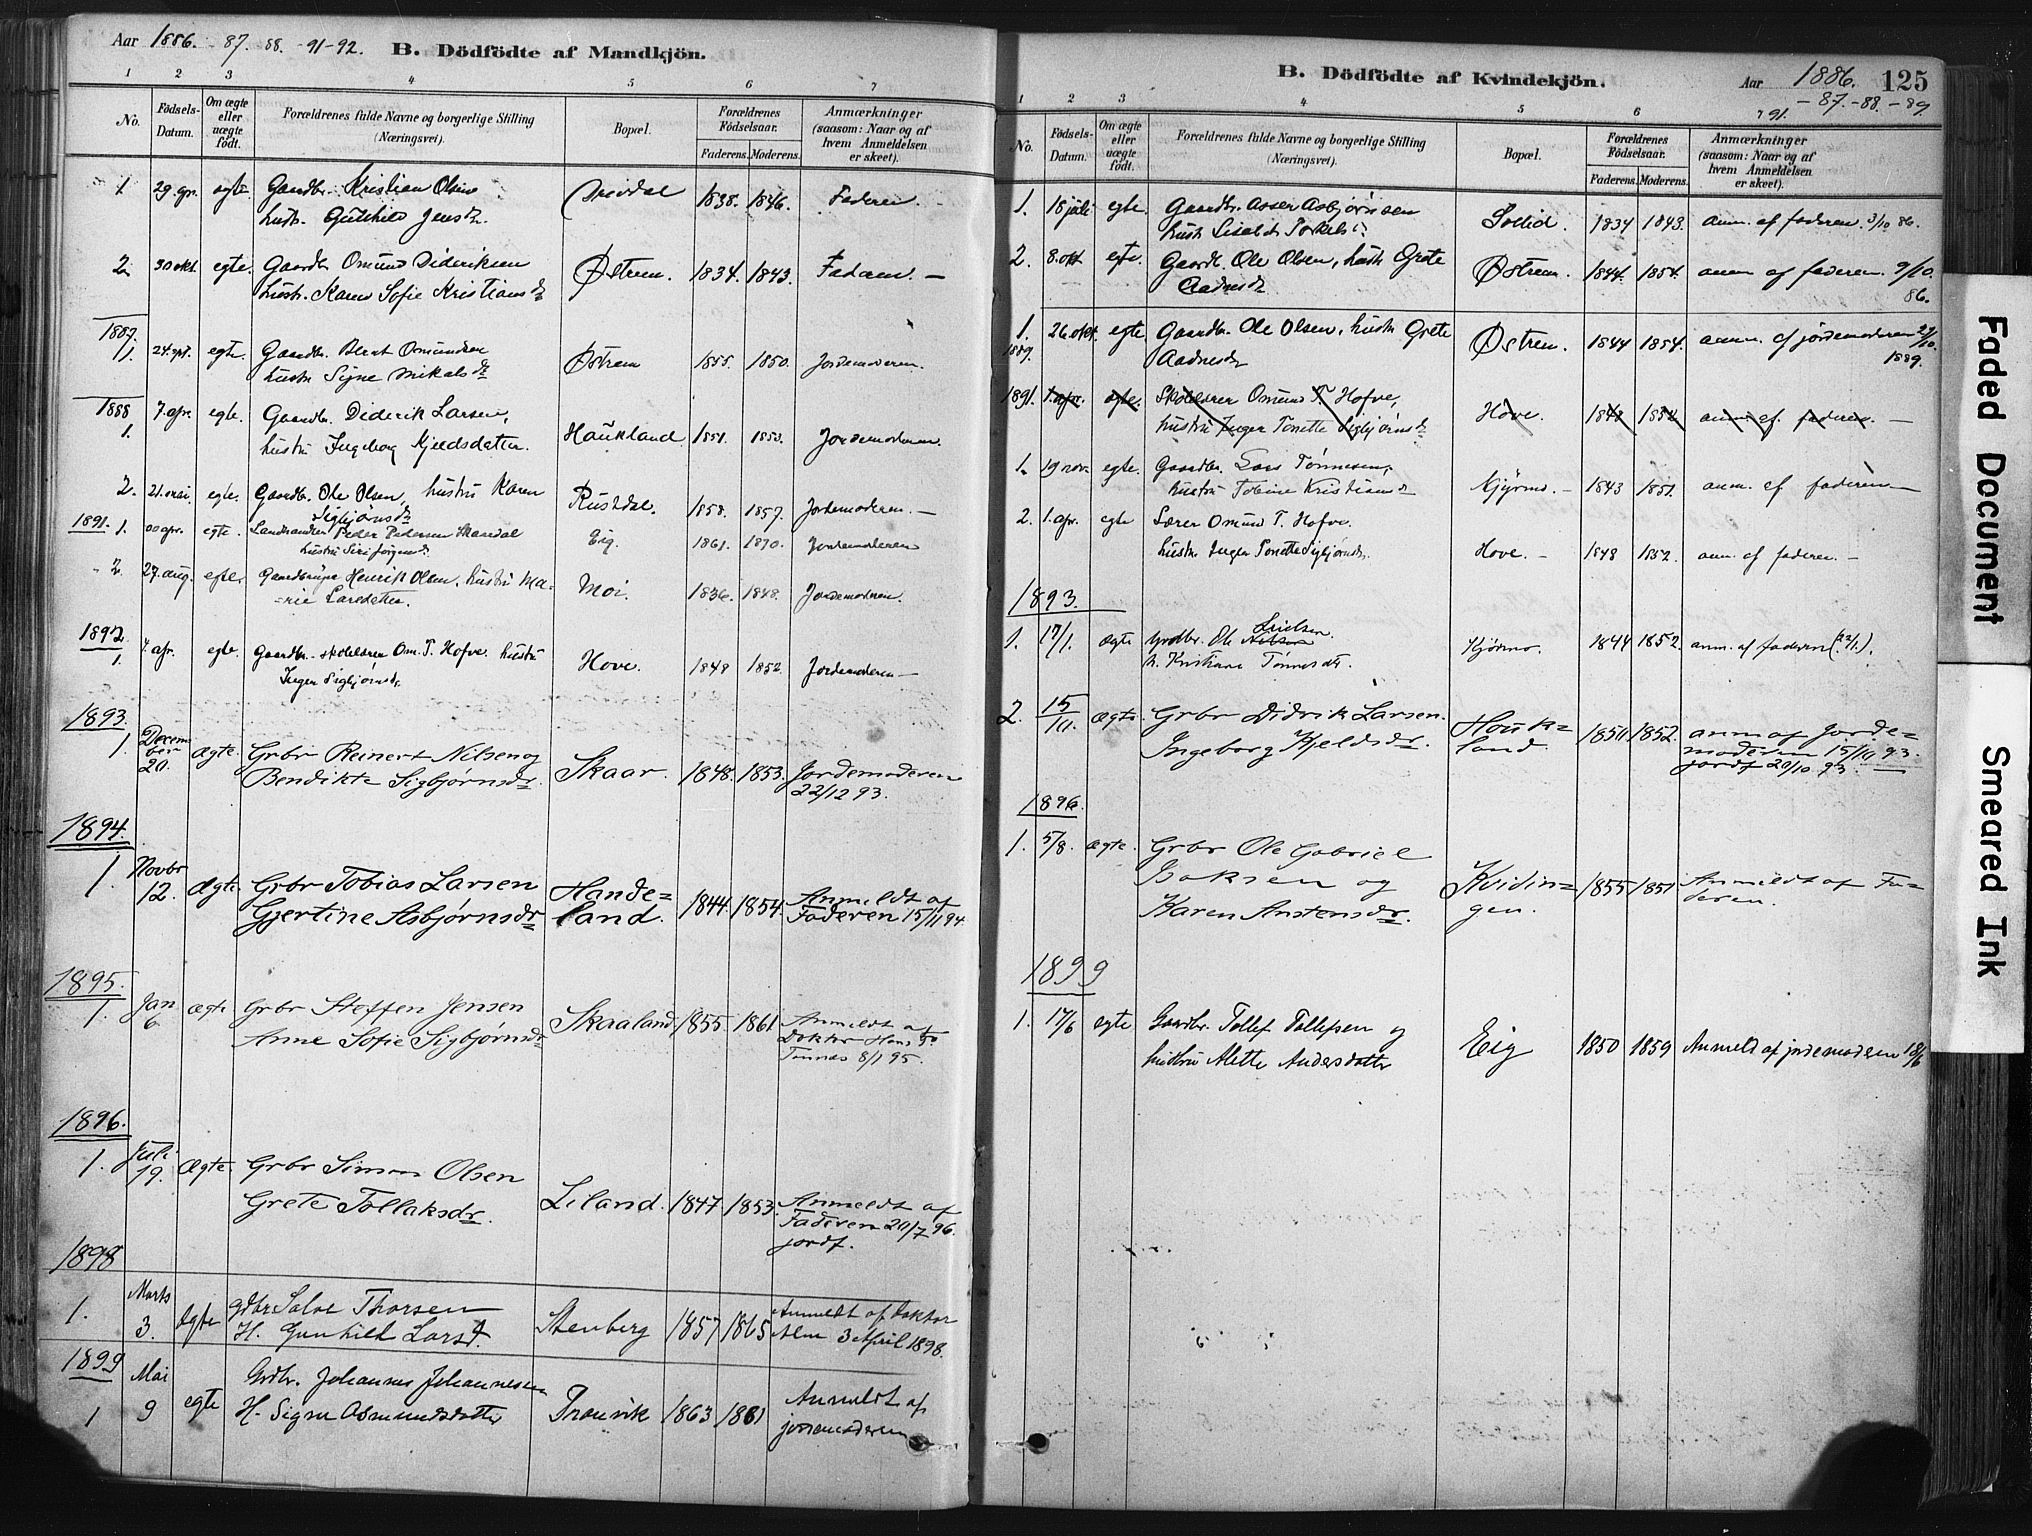 Aar 1886. - 87. 88. - 91 - 92.
B. Dödfödte af Mandkjön.
1 2 3 4 5 6 7
No.
Födsels-Datum.
Om ægte eller uægte födt.
Forældrenes fulde Navne og borgerlige Stilling (Næringsvei).
Bopæl.
Forældrenes Födselsaar.
Faderens. Moderens.
Anmærkninger (saasom: Naar og af hvem Anmeldelsen er skeet).
1 29 egte Gaardbr. Kristian Olsen 1838. 1846. Faderen
hustr. Jensd.
2. 30 okt. egte. Gaardbr. Omund Dideriksen Østrem. 1834. 1843. Faderen. —
hustr. Karen Sofie Kristiansd.
1887.
1. 24. egte. Gaardbr. Berat Osmundsen Østrem 1855. 1850. Jordemoderen.
hustr. Signe Mikalsd.
1888
1. 7. apr. egte. Gaardbr. Diderik Larsen, Haukland 1851. 1853. Jordemoderen.
hustru Ingeborg Kjeldsdatter.
2. 21. mai. egte. Gaardbr. Ole Olsen, hustru Karen Rusdal. 1858. 1857. Jordemoderen. —
Sigbjørnsd.
1891. 1. apr. egte. Landhandler Peder Pedersen Eig. 1861. 1870. Jordemoderen
hustru Siri Jørgensd.
2. 27. aug. Gaardbruger Henrik Olsen, hustru Ma- Moi. 1836. 1848. Jordemoderen.
rie Larsdatter.
1892
1. apr. egte. Gaardbr. skolelærer Om. T. Hofve. hustru Hove. 1848 1852. Jordemoderen —
Inger Sigbjørnsd.
1893.
1. December 20. ægte. Grbr Reinert Nilsen og Skaar. 1848. 1853. Jordemoderen
Bendikte Sigbjørnsdr. 22/12 93.
1894.
1. Novbr 12. Ægte. Grbr Tobias Larsen Hande= 1844. 1854. Anmeldt af
Gjertine Asbjørnsdr land. Faderen 15/11 94.
1895.
1. Jan 6. ægte Grbr Steffen Jensen Skaaland 1855. 1861 Anmeldt af
Anne Sofie Sigbjørnsdr Doktor Hans
8/1 95.
1896.
1. Juli 19. Ægte. Grbr Simon Olsen Liland. 1847 1853. Anmeldt af
Grete Tollaksdr. Faderen 20/7 96.
jordf.
1898
1. Marts 3. Ægte gdbr Salve Thorsen Stenberg 1857 1865 Anmeldt af Doktor
H. Gunhild Larsd. 3 April 1898.
1899
1 Mai 9 egte Grdbr. Johannes Johannesen 1863 1861 Anmeldt af
H. Signe Osmundsdatter jordemoderen
B. Dödfödte af Kvindekjön.
Aar 1886. 125
- 87. - 88. - 89.
91.
1 2 3 4 5 6
No.
Födsels-Datum.
Om ægte eller uægte födt.
Forældrenes fulde Navne og borgerlige Stilling (Næringsvei).
Bopæl.
Forældrenes Födselsaar.
Faderens. Moderens.
Anmærkninger (saasom: Naar og af hvem Anmeldelsen er skeet).
1. 18 juli egte. Gaardbr. Asser Asbjørnsen Sollid. 1834 1843. anm. af faderen. 3/10 86.
hustr. Torkelsd.
2. 8. okt egte. Gaardb. Ole Olsen, hustr. Grete Østrem. 1844. 1854. anm af faderen. 9/10.
Aadnesd 86.
1. 1889. 26. okt. egte Gaardbr. Ole Olsen, hustr. Grete Østrem. 1844 1854. anm. af jordemoderen 29/10.
Aadnesdr 1889.
1891. 1. apr. egte. Skolelærer Omund T. Hofve, Hove. 1848 1852 anm. af faderen. —
hustru Inger Tonette Sigbjørnsd
1. 19 nov. egte. Gaardbr. Lars Tønnesen, Kjørmo. — 1843 1851. anm. af faderen —
hustru Tobine Kristiansd
2. 1. apr. egte Lærer Omund T. Hofve. Hove. — 1848 1852. anm. af faderen —
hustr. Inger Tonette Sigbjørnsd.
1893.
1. 17/1. ægte Grdbr. Ole Kjørmo. 1844 1852. anm. af faderen (22/1).
h. Kristiane Tønnesdt.
2. 15/10. ægte Grbr Didrik Larsen. Houk= 1850 1852. anm af Jorde=
Ingeborg Kjeldsdr. land. moderen 15/10 93.
jordf 20/10 93. —
1896.
1. 5/8. ægte. Grbr Ole Gabriel
Isaksen og Kvidin= 1855 1851 Anmeldt af Fa=
Karen Anstensdr. gen. deren.
1899
1. 17/6 egte Gaardbr. Tollef Tollefsen og Eig 1850 1859 Anmeld af jordemoderen 18/6
hustru Mette Andersdatter
Faded Document
Smeared Ink